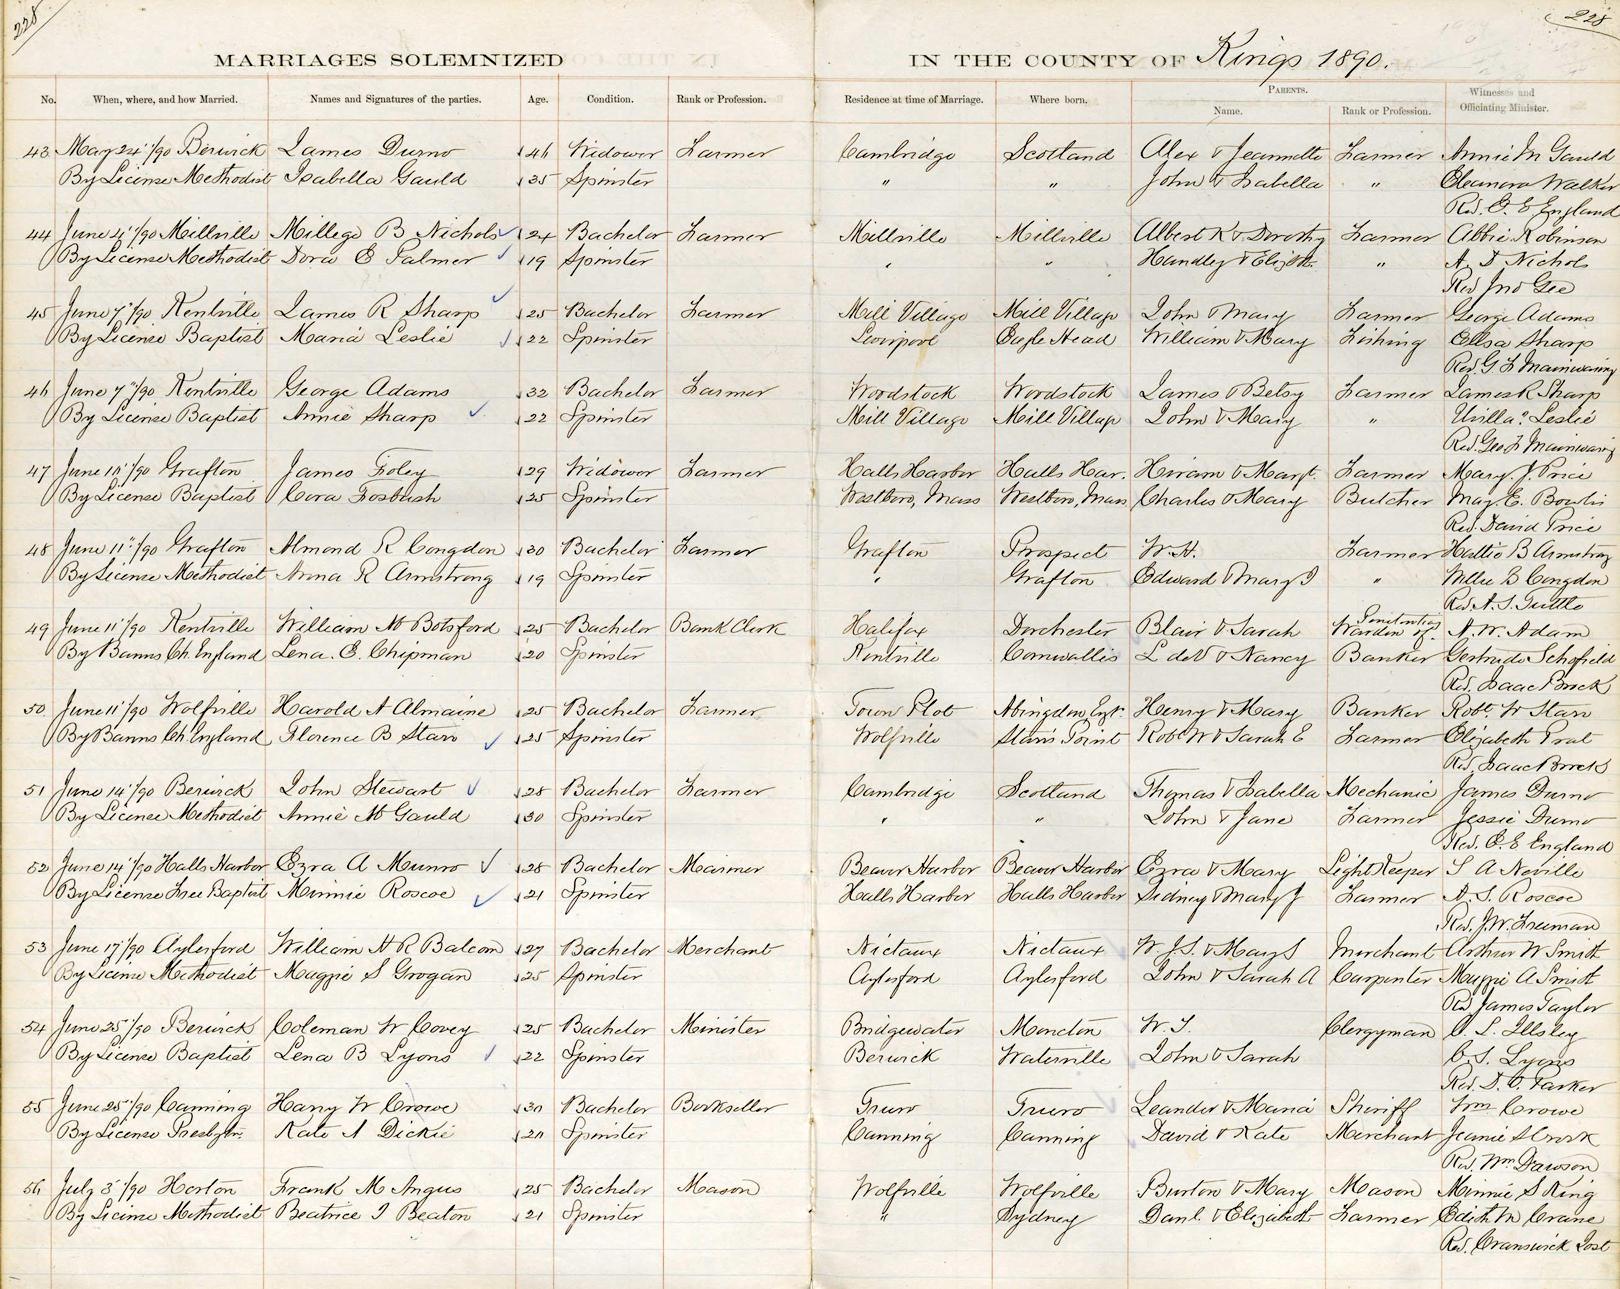 228
228
MARRIAGES SOLEMNIZED IN THE COUNTY OF Kings 1890.
No. When, where, and how Married. Names and Signatures of the parties. Age. Condition. Rank or Profession. Residence at time of Marriage. Where born. PARENTS. Witnesses and
Name. Rank or Profession. Officiating Minister.
43 May 24"/90 Berwick James Durno 46 Widower Farmer Cambridge Scotland Alex & Jeannette Farmer Annie M Gauld
By License Methodist Isabella Gauld 35 Spinster " " John & Isabella " Eleanora Walker
Rev. O. E England
44 June 4"/90 Millville Millege B Nichols 24 Bachelor Farmer Millville Millville Albert K & Dorothy Farmer Abbie Robinson
By License Methodist Dora E Palmer 19 Spinster " " Handley & Elizth. " A. D Nichols
Rev Jno Gee
45 June 7"/90 Kentville James R Sharp 25 Bachelor Farmer Mill Village Mill Village John & Mary Farmer George Adams
By License Baptist Maria Leslie 22 Spinster Liverpool Eagle Head William & Mary Fishing Ellsa Sharp
Rev. G F Mainwaring
46 June 7"/90 Kentville George Adams 32 Bachelor Farmer Woodstock Woodstock James & Betsy Farmer James R Sharp
By License Baptist Annie Sharp 22 Spinster Mill Village Mill Village John & Mary " Leslie
Rev Geo F Mainwaring
47 June 10"/90 Grafton James Foley 29 Widower Farmer Halls Harbor Halls Har. Hiram & Margt. Farmer Mary J. Price
By License Baptist Cora Fosbush 25 Spinster Westboro, Mass Westboro, Mass Charles & Mary Butcher May E. Bowlis
Rev. David Price
48 June 11"/90 Grafton Almond R Congdon 30 Bachelor Farmer Grafton Prospect W. H. Farmer Hattie B Armstrong
By License Methodist Anna R Armstrong 19 Spinster " Grafton Edward & Mary I " Willie B Congdon
Rev. A. S. Tuttle
49 June 11"/90 Kentville William M Botsford 25 Bachelor Bank Clerk Halifax Dorchester Blair & Sarah Warden of Penitentiary A. W. Adam
By Banns Ch. England Lena. E. Chipman 20 Spinster Kentville Cornwallis L deV & Nancy Banker Gertrude Schofield
Rev. Isaac Brock
50 June 11"/90 Wolfville Harold A Almaine 25 Bachelor Farmer Town Plot Abingdon, Eng. Henry & Mary Banker Robt. W Starr
By Banns Ch. England Florence B Starr 25 Spinster Wolfville Starrs Point Robt W & Sarah E Farmer Elizabeth Prat
Rev. Isaac Brock
51 June 14"/90 Berwick John Stewart 28 Bachelor Farmer Cambridge Scotland Thomas & Isabella Mechanic James Durno
By License Methodist Annie M Gauld 30 Spinster " " John & Jane Farmer Jessie Durno
Rev. O. E England
52 June 14"/90 Halls Harbor Ezra A Munro 28 Bachelor Mariner Beaver Harbor Beaver Harbor Ezra & Mary Light Keeper S A Neville
By License Free Baptist Minnie Roscoe 21 Spinster Halls Harbor Halls Harbor Sidney & Mary J Farmer A. S. Roscoe
Rev. J. W. Freeman
53 June 17"/90 Aylesford William H R Balcom 27 Bachelor Merchant Nictaux Nictaux W. J. S. & Mary S Merchant Arthur W Smith
By License Methodist Maggie S Grogan 25 Spinster Aylesford Aylesford John & Sarah A Carpenter Maggie A Smith
Rev James Taylor
54 June 25"/90 Berwick Coleman W Covey 25 Bachelor Minister Bridgewater Moncton W. T. Clergyman C. L. Illsley
By License Baptist Lena B Lyons 22 Spinster Berwick Waterville John & Sarah C. S. Lyons
Rev. D. O. Parker
55 June 25"/90 Canning Harry W Crowe 30 Bachelor Bookseller Truro Truro Leander & Maria Sheriff Wm Crowe
By License Presbytn. Kate A Dickie 20 Spinster Canning Canning David & Kate Merchant Jennie S Crook
Rev. Wm Dawson
56 July 3"/90 Horton Frank M Angus 25 Bachelor Mason Wolfville Wolfville Burton & Mary Mason Minnie S King
By License Methodist Beatrice I Beaton 21 Spinster " Sydney Danl. & Elizabeth Farmer Edith M Crane
Rev. Cranswick Jost